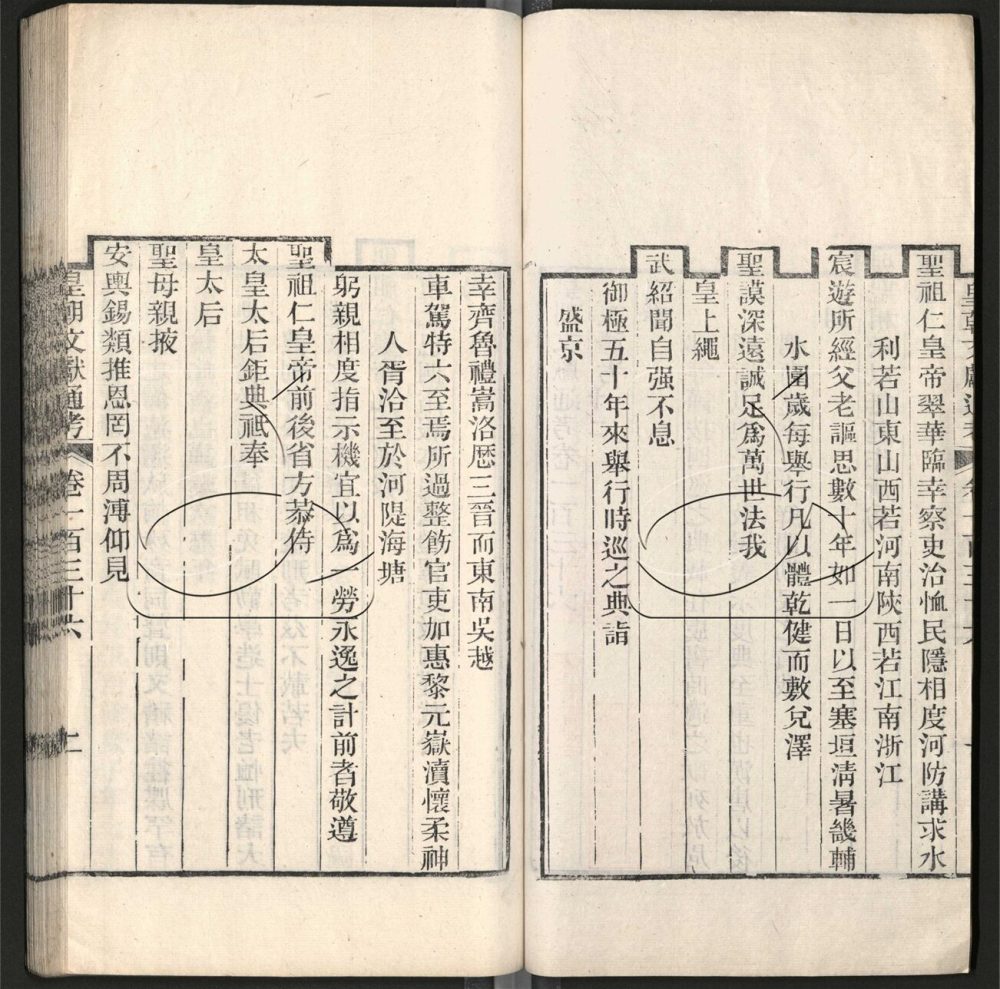 聖祖仁皇帝翠華臨幸察吏治恤民隱相度河防講求水
利若山東山西若河南陝西若江南浙江
宸遊所經父老謳思數十年如一日以至塞垣清暑畿輔
水圍歲每舉行凡以體乾健而敷兌澤
聖謨深遠誠足爲萬世法我
皇上繩
武紹聞自强不息
御極五十年來舉行時巡之典詣
盛京
幸齊魯禮嵩洛歷三晉而東南吳越
車駕特六至焉所過整飭官吏加惠黎元嶽瀆懷柔神
人胥洽至於河隄海塘
躬親相度指示機宜以爲一勞永逸之計前者敬遵
聖祖仁皇帝前後省方恭侍
太皇太后鉅典祗奉
皇太后
聖母親掖
安輿錫類推恩罔不周溥仰見
皇朝文獻通考 卷一百三十六 二